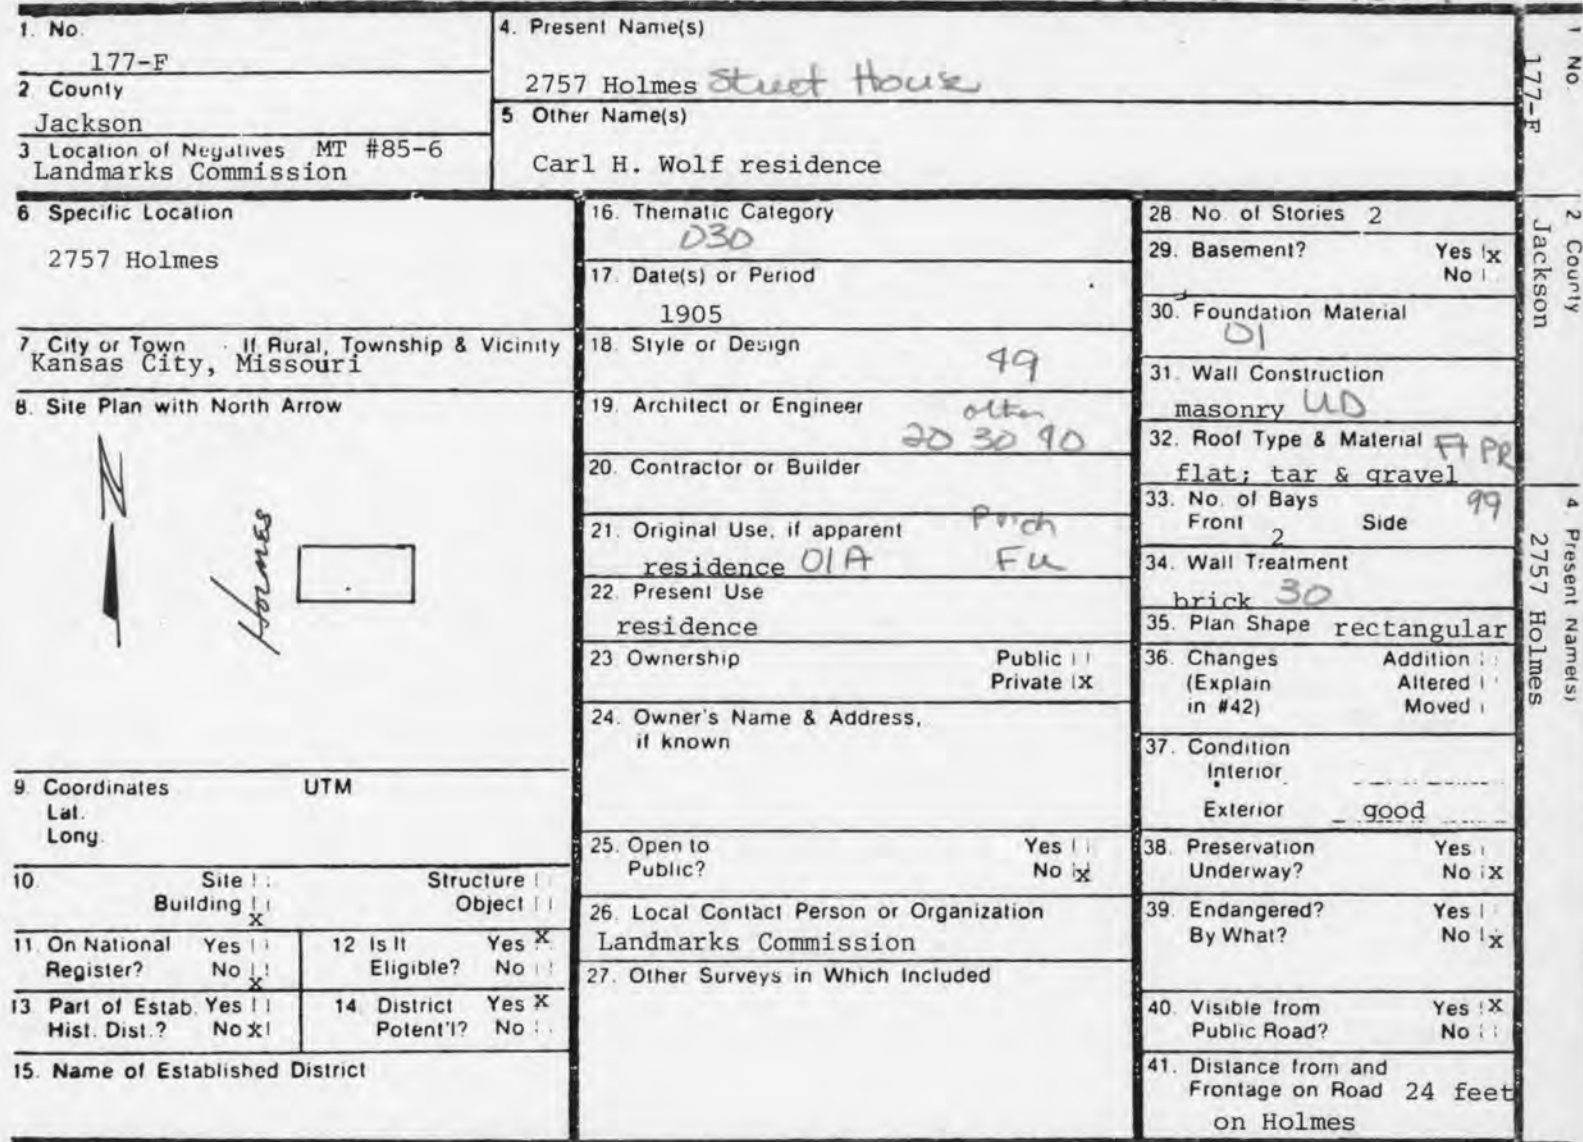 1. No.
177-F
2 County
Jackson
3 Location of Negatives MT #85-6
Landmarks Commission
4. Present Name(s)
2757 Holmes Street House
5 Other Name(s)
Carl H. Wolf residence
6 Specific Location
2757 Holmes
7. City or Town If Rural, Township & Vicinity
Kansas City, Missouri
8. Site Plan with North Arrow
N
Holmes
9. Coordinates UTM
Lat.
Long.
10. Site Structure
Building x Object
11. On National Yes
Register? No x
12 Is It Yes X
Eligible? No
13 Part of Estab. Yes
Hist. Dist.? No x
14. District Yes X
Potent'l? No
15. Name of Established District
16. Thematic Category
030
17. Date(s) or Period
1905
18. Style or Design
49
19. Architect or Engineer other
20 30 90
20. Contractor or Builder
21. Original Use, if apparent Porch
residence 01A Fu
22. Present Use
residence
23 Ownership Public
Private X
24. Owner's Name & Address,
if known
25. Open to Yes
Public? No x
26. Local Contact Person or Organization
Landmarks Commission
27. Other Surveys in Which Included
28. No. of Stories 2
29. Basement? Yes x
No
30. Foundation Material
01
31. Wall Construction
masonry UD
32. Roof Type & Material Ft PR
flat; tar & gravel
33. No. of Bays 99
Front 2 Side
34. Wall Treatment
brick 30
35. Plan Shape rectangular
36. Changes Addition
(Explain Altered
in #42) Moved
37. Condition
Interior
Exterior good
38. Preservation Yes
Underway? No X
39. Endangered? Yes
By What? No x
40. Visible from Yes X
Public Road? No
41. Distance from and
Frontage on Road 24 feet
on Holmes
1 No.
177-F
2 County
Jackson
4 Present Name(s)
2757 Holmes